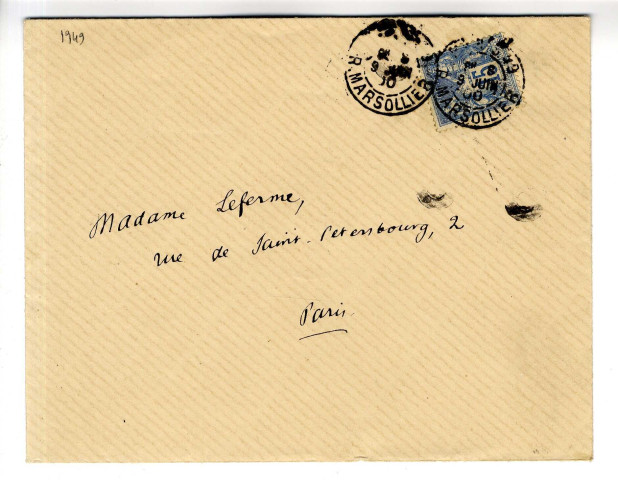 1949
R. MARSOLLIER
9 JUIN
00
R. MARSOLLIER
9 JUIN
00
15
Madame Leferme,
rue de Saint-Petersbourg, 2
Paris